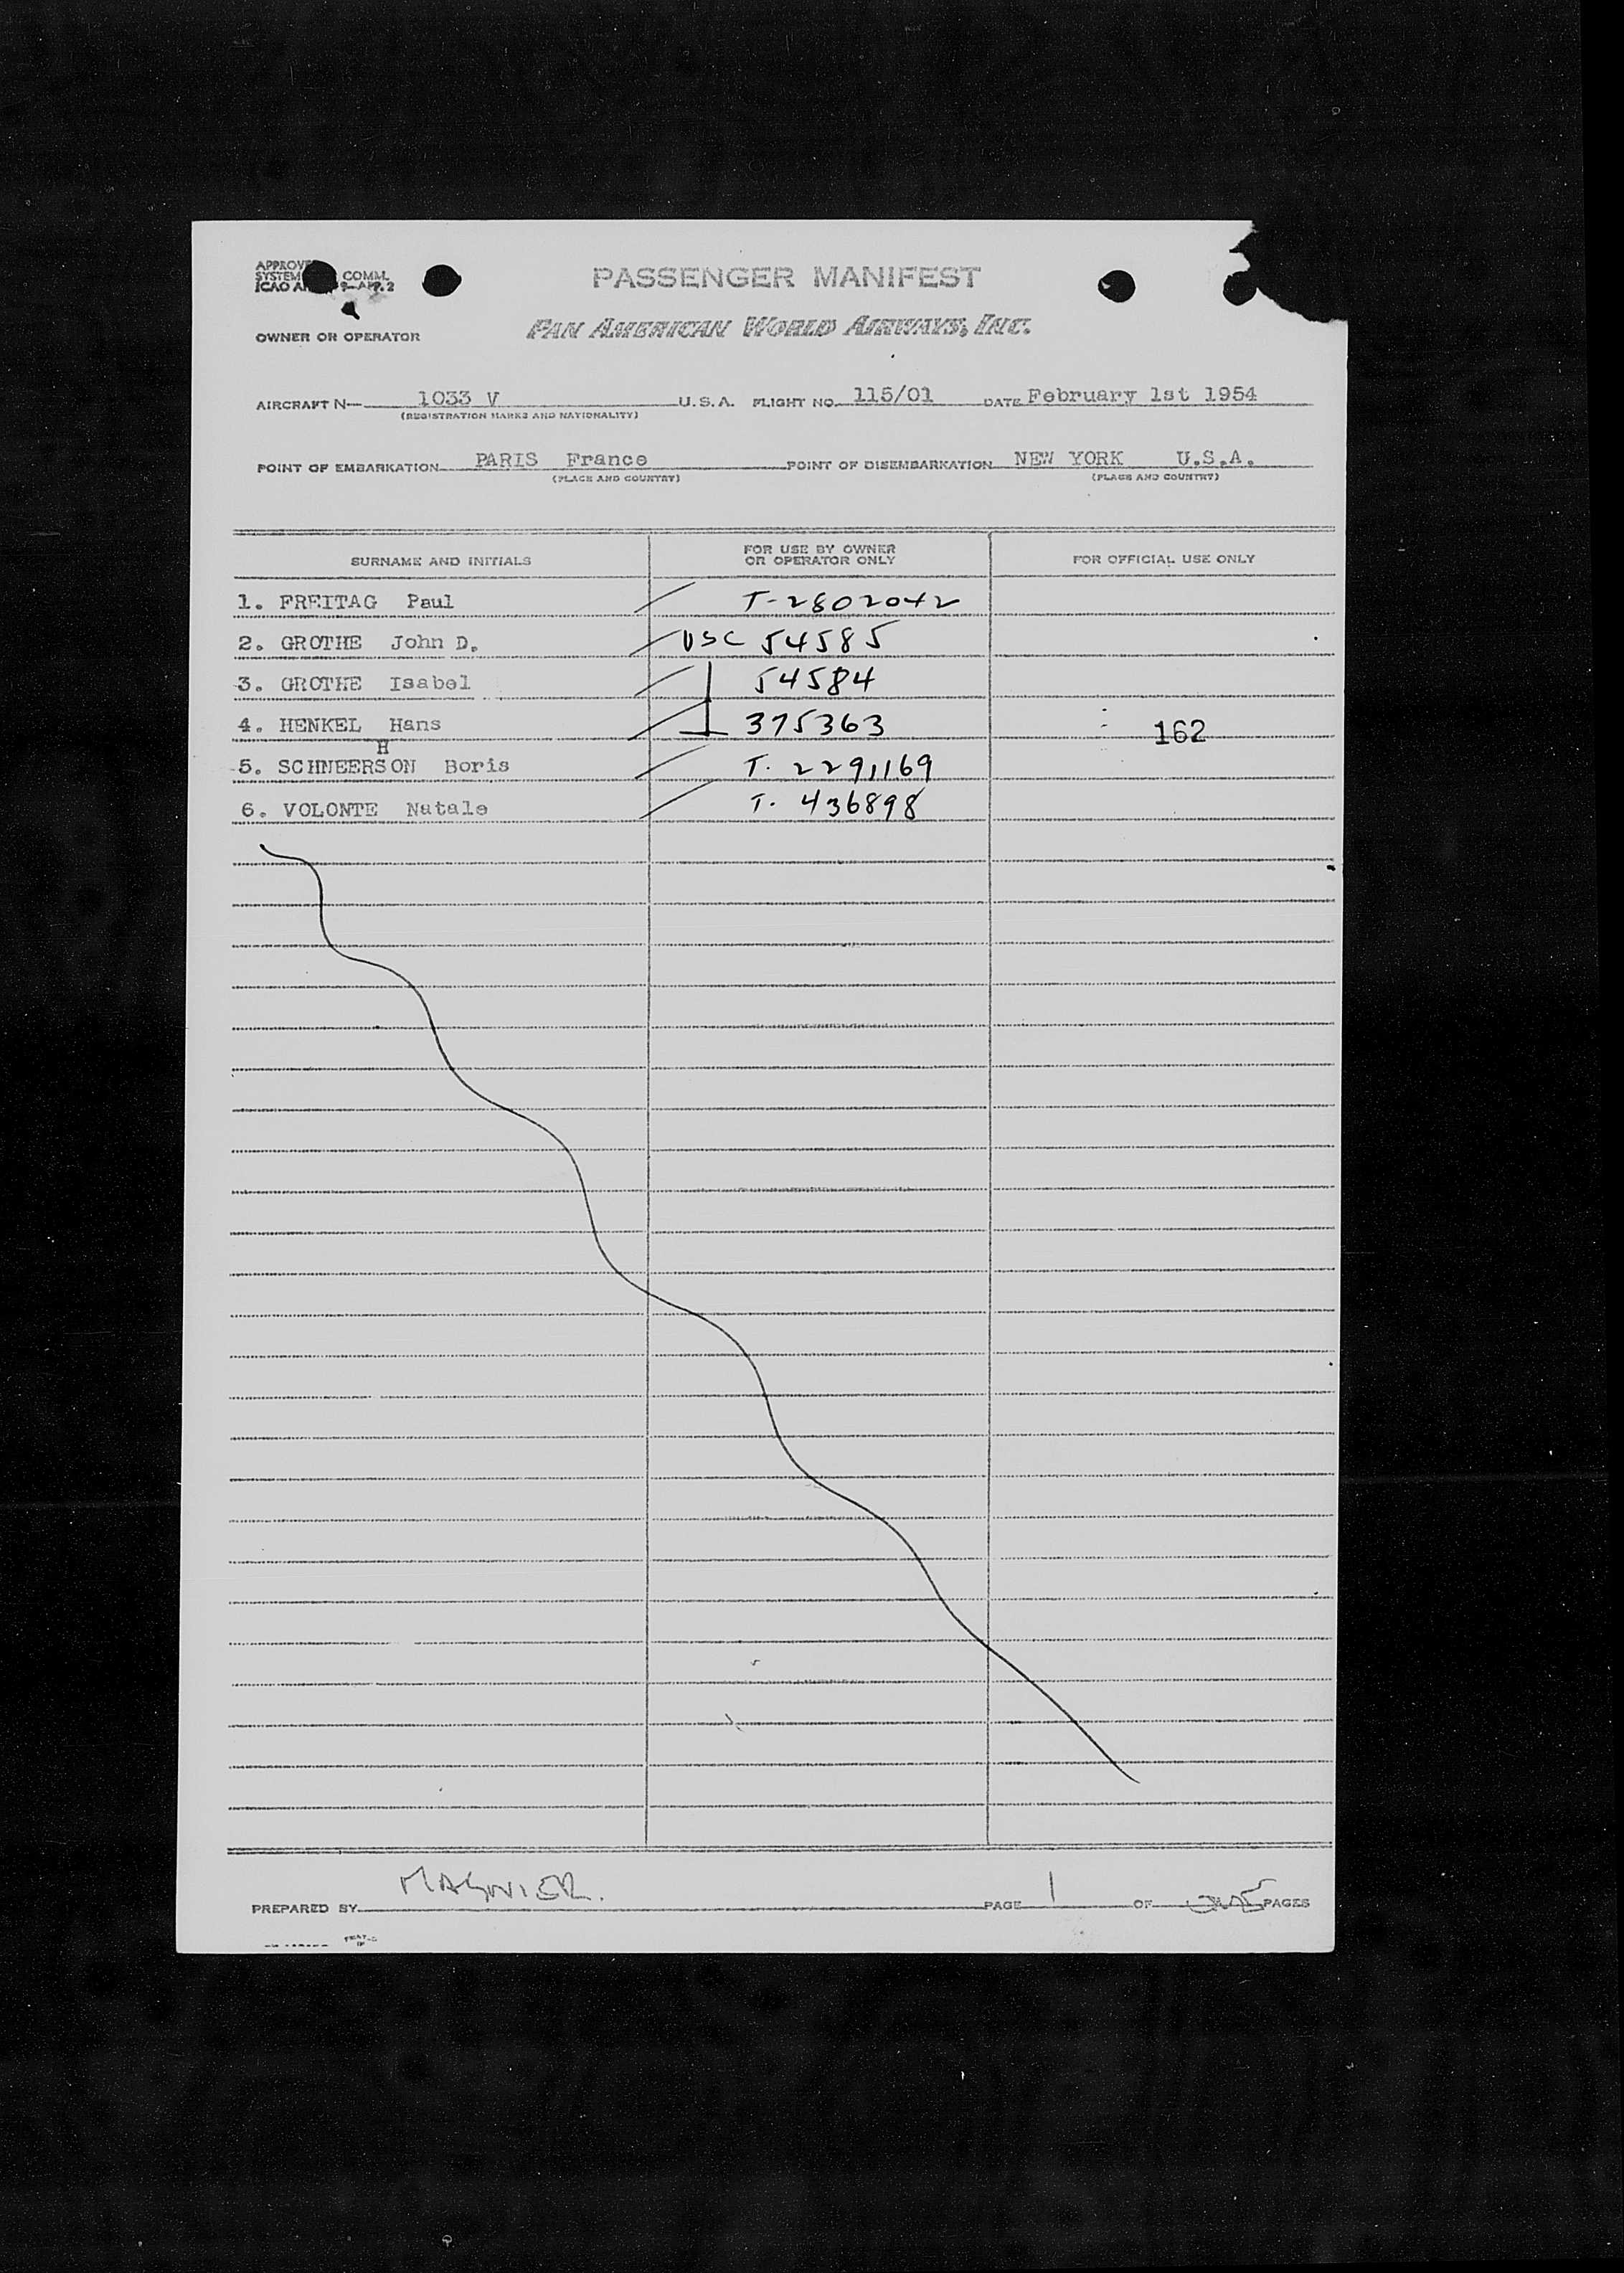 APPROVE
SYSTEM COMM.
ICAO A 9-APP. 2
PASSENGER MANIFEST
OWNER OR OPERATOR PAN AMERICAN WORLD AIRWAYS, INC.
AIRCRAFT N— 1033 V U.S.A. FLIGHT NO. 115/01 DATE February 1st 1954
(REGISTRATION MARKS AND NATIONALITY)
POINT OF EMBARKATION PARIS France POINT OF DISEMBARKATION NEW YORK U.S.A.
(PLACE AND COUNTRY) (PLACE AND COUNTRY)
SURNAME AND INITIALS FOR USE BY OWNER OR OPERATOR ONLY FOR OFFICIAL USE ONLY
1. FREITAG Paul T-2802042
2. GROTHE John D. USC 54585
3. GROTHE Isabel 54584
4. HENKEL Hans 375363 162
H
5. SCHNEERSON Boris T. 2291169
6. VOLONTE Natale T. 436898
PREPARED BY MAGNIER. PAGE 1 OF ONE PAGES